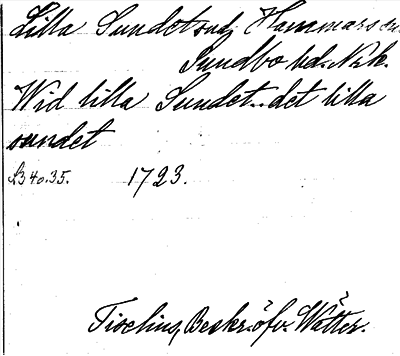 Lilla Sundet sndj Hammars sn
Sundbo hd. Nrk.
Wid lilla Sundet.. det lilla
sundet
s. 34 o. 35. 1723.
Tiselius, Beskr. öfv. Wätter.